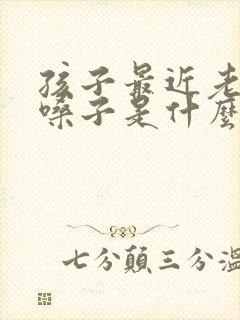 孩子最近老
嗓子是什麼
七分顛三分溫